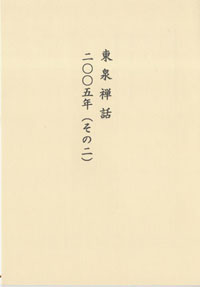 東泉禅話
二〇〇五年(その二)